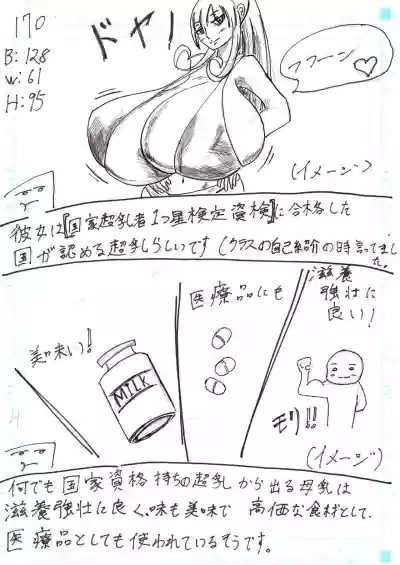 170
B:128
W:61
H:95
ドヤ!
フフーン♡
(イメージ)
彼女は【国家超乳者1つ星検定資検】に合格した
国が認める超乳らしいです(クラスの自己紹介の時言ってました。
美味い!!
MILK
医療品にも
滋養
強壮に
良い!
モリ!!
(イメージ)
何でも国家資格持ちの超乳から出る母乳は
滋養強壮に良く、味も美味で 高価な食材として、
医療品としても使われているそうです。